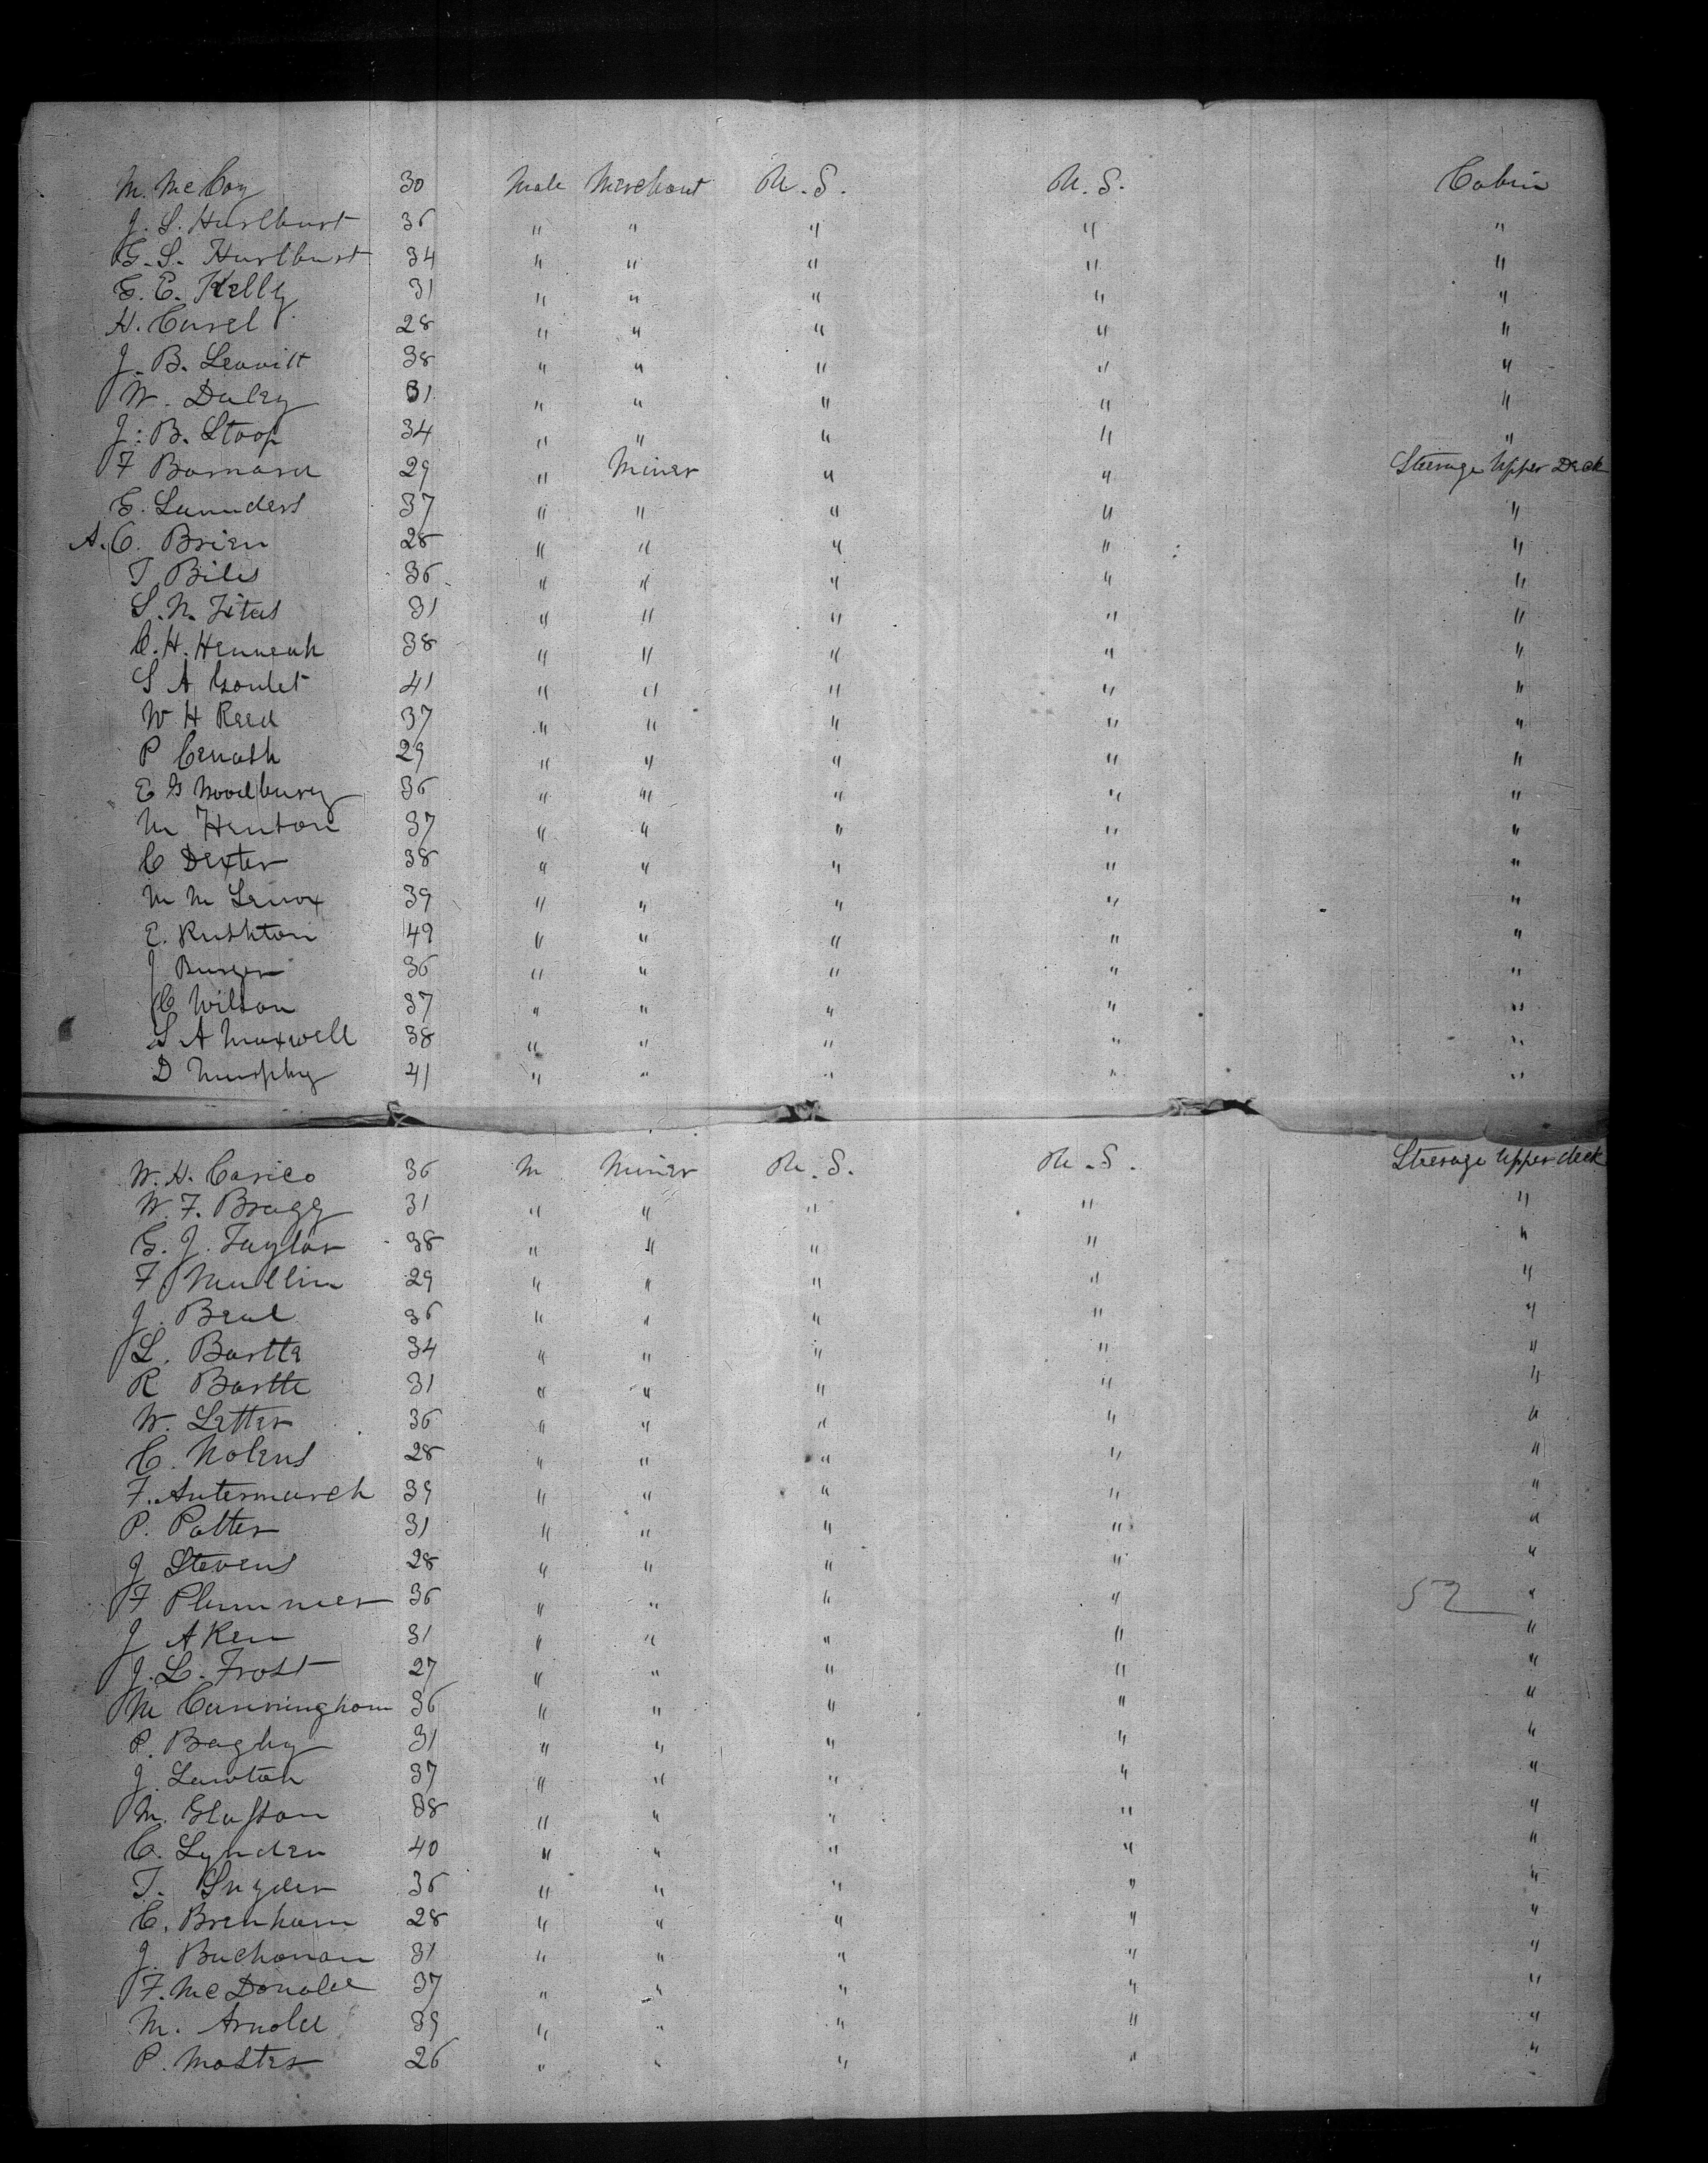 M. McCoy 30 Male Merchant U.S. U.S. Cabin
J. S. Hurlburt 36 " " " " "
G. S. Hurlburt 34 " " " " "
G. E. Kelly 31 " " " " "
H. Curel 28 " " " " "
J. B. Leavitt 38 " " " " "
W. Daley 31 " " " " "
J. B. Stoop 34 " " " " "
F Barnard 29 " Miner " " Steerage Upper Deck
G. Saunders 37 " " " " "
A. C. Brien 28 " " " " "
T Biles 36 " " " " "
S. N. Titus 31 " " " " "
C. H. 38 " " " " "
S A Goulet 41 " " " " "
W H Reed 37 " " " " "
P 29 " " " " "
E G Woodbury 36 " " " " "
M Henton 37 " " " " "
C Dexter 38 " " " " "
M M Lenox 39 " " " " "
E. Rushton 49 " " " " "
J Burger 36 " " " " "
C Wilson 37 " " " " "
S A Maxwell 38 " " " " "
D Murphy 41 " " " " "
W. H. Carico 36 M Miner U.S. U.S. Steerage Upper deck
W. F. Bragg 31 " " " " "
G. J. Taylor 38 " " " " "
F Mullin 29 " " " " "
J. Beal 36 " " " " "
L. Bartte 34 " " " " "
R Bartte 31 " " " " "
W. Letter 36 " " " " "
C. Nolens 28 " " " " "
F. Antermarch 39 " " " " "
P. Potter 31 " " " " "
J Stevens 28 " " " " "
F Plummer 36 " " " " 52 "
J Aken 31 " " " " "
J. L. Frost 27 " " " " "
M Cunningham 36 " " " " "
P. Bagby 31 " " " " "
J. Lawton 37 " " " " "
M. 38 " " " " "
C. Lynden 40 " " " " "
T. Snyder 36 " " " " "
C. Brenham 28 " " " " "
J. Buchanan 31 " " " " "
F. McDonald 37 " " " " "
M. Arnold 39 " " " " "
P. Master 26 " " " " "